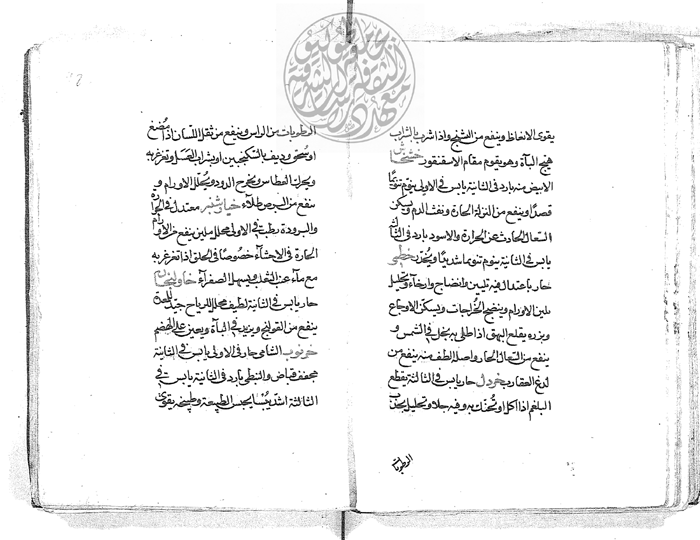 يقوى الانعاظ وينفع من التشنج واذا شرب بالشراب
هيج الباة وهو يقوم مقام الاسقنقور خشخاش
الابيض منه بارد في الثانية يابس في الاولى ينوم تنويما
قصدا وينفع من النزلة الحارة ونفث الدم ويسكن
السعال الحادث عن الحرارة والاسود بارد في الثالثة
يابس في الثانية ينوم تنويما شديدا ويخدر خطمي
حار باعتدال فيه تليين وانضاج وارخاء وتحليل
يلين الاورام وينضج الخراجات ويسكن الاوجاع
وبزره يقلع البهق اذا طلى به بخل في الشمس و
ينفع من السعال الحار واصله الطف منه ينفع من
لدغ العقارب خردل حار يابس في الثالثة يقطع
البلغم اذا اكل او تحنك به وفيه جلا وتحليل يجذب
الرطوبات
الرطوبات من الراس وينفع من ثقل اللسان اذا مضغ
او سحق وديف بالسكنجبين او بشراب العسل وتغرغر به
ويحرك العطاس ويخرج الدود ويحلل الاورام و
ينفع من البرص طلاء خيارشنبر معتدل في الحرارة
والبرودة رطب في الاولى محلل ملين ينفع من الاورام
الحارة في الاحشاء خصوصا في الحلق اذا تغرغر به
مع ماء عنب الثعلب ويسهل الصفراء خاولنجان
حار يابس في الثانية لطيف محلل للرياح جيد للمعدة
ينفع من القولنج ويزيد في الباة ويعين على الهضم
خرنوب الشامى حار في الاولى يابس في الثانية
مجفف قباض والنبطي بارد في الثانية يابس في
الثالثة اشد يبسا يحبس الطبيعة وطبيخه يقوى